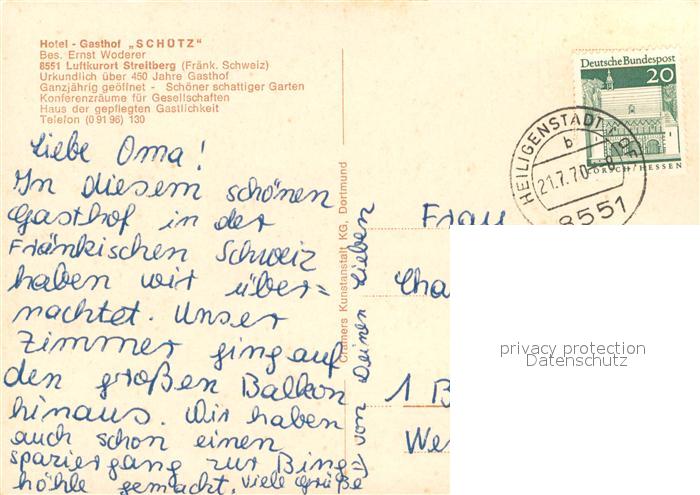 Hotel - Gasthof „SCHÜTZ"
Bes. Ernst Woderer
8551 Luftkurort Streitberg (Fränk. Schweiz)
Urkundlich über 450 Jahre Gasthof
Ganzjährig geöffnet - Schöner schattiger Garten
Konferenzräume für Gesellschaften
Haus der gepflegten Gastlichkeit
Telefon (0 91 96) 130
Liebe Oma!
In diesem schönen
Gasthof in der
Fränkischen Schweiz
haben wir über=
nachtet. Unser
Zimmer ging auf
den großen Balkon
hinaus. Wir haben
auch schon einen
spaziergang zur Bing
höhle gemacht. viele grüße
von Deinen Lieben
Cramers Kunstanstalt KG, Dortmund
Deutsche Bundespost
20
LORSCH/HESSEN
HEILIGENSTADT
b
21.7.70-8
8551
Frau
Cha
1 B
We
privacy protection
Datenschutz